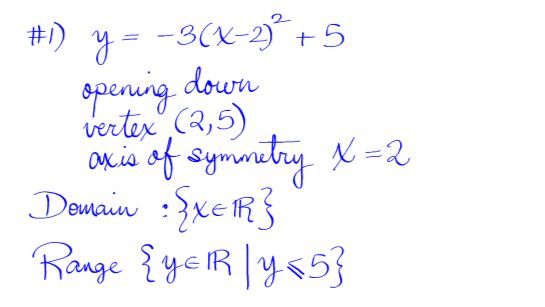 #1) y = -3(x-2)² + 5
opening down
vertex (2,5)
axis of symmetry x = 2
Domain : {x∈ℝ}
Range {y∈ℝ | y⩽5}